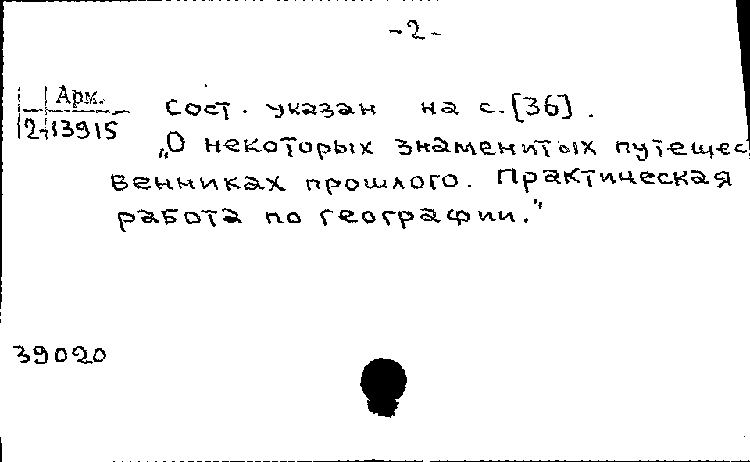 -2-
Арм.
2-13915
Сост. указан на с. [36].
„О некоторых знаменитых путешес
венниках прошлого. Практическая
работа по географии.“
39020